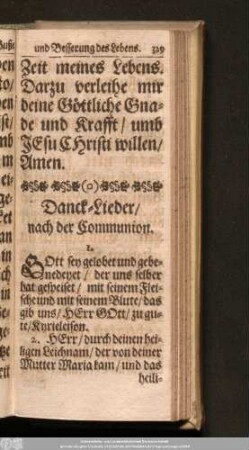 und Besserung des Lebens. 329
Zeit meines Lebens.
Darzu verleihe mir
deine Göttliche Gna-
de und Krafft/ umb
JEsu CHristi willen/
Amen.
Danck-Lieder/
nach der Communion.
1.
GOtt sey gelobet und gebe-
nedeyet/ der uns selber
hat gespeiset/ mit seinem Flei-
sche und mit seinem Blute/ das
gib uns/ HErr GOtt/ zu gu-
te/ Kyrieleison.
2. HErr/ durch deinen hei-
ligen Leichnam/ der von deiner
Mutter Maria kam/ und das
heili-